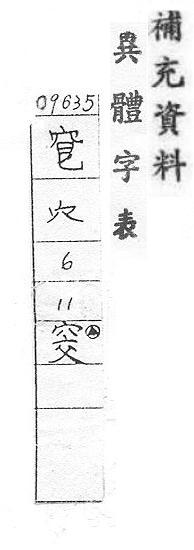 補充資料
異體字表
09635
穴
6
11
窔